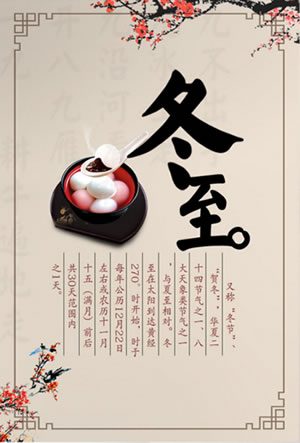 冬至。
又称“冬节”、
“贺冬”，华夏二
十四节气之一、八
大天象类节气之一
，与夏至相对。冬
至在太阳到达黄经
270°时开始，时于
每年公历12月22日
左右或农历十一月
十五（满月）前后
共30天范围内
之一天。